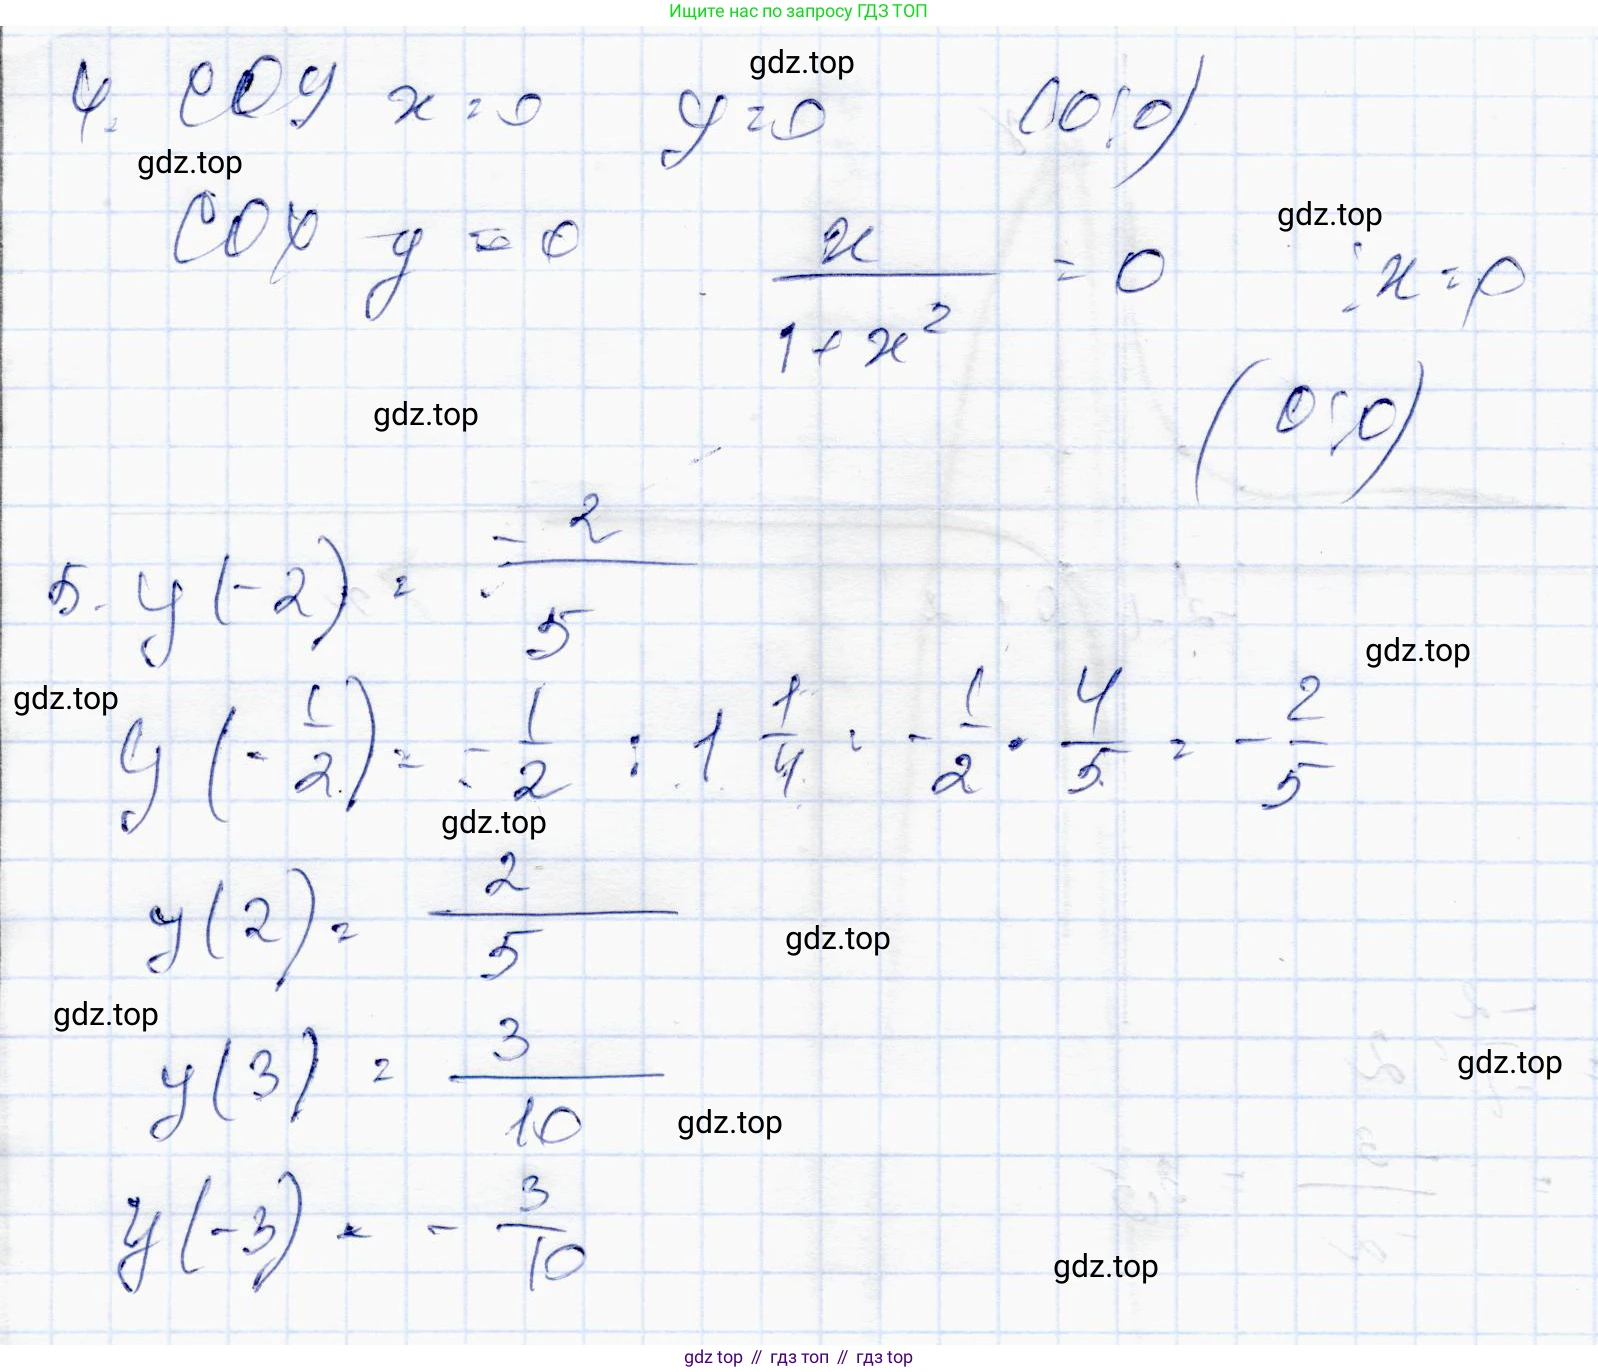 Ищите нас по запросу ГДЗ ТОП
gdz.top
4. COY x = 0 y = 0 (0; 0)
gdz.top
gdz.top
COX y = 0 x/(1 + x²) = 0 ; x = 0
gdz.top
(0; 0)
5. y(-2) = -2/5
gdz.top
gdz.top
y(-1/2) = -1/2 : 1 1/4 = -1/2 · 4/5 = -2/5
gdz.top
y(2) = 2/5
gdz.top
gdz.top
y(3) = 3/10
gdz.top
gdz.top
y(-3) = -3/10
gdz.top
gdz top // гдз топ // гдз top